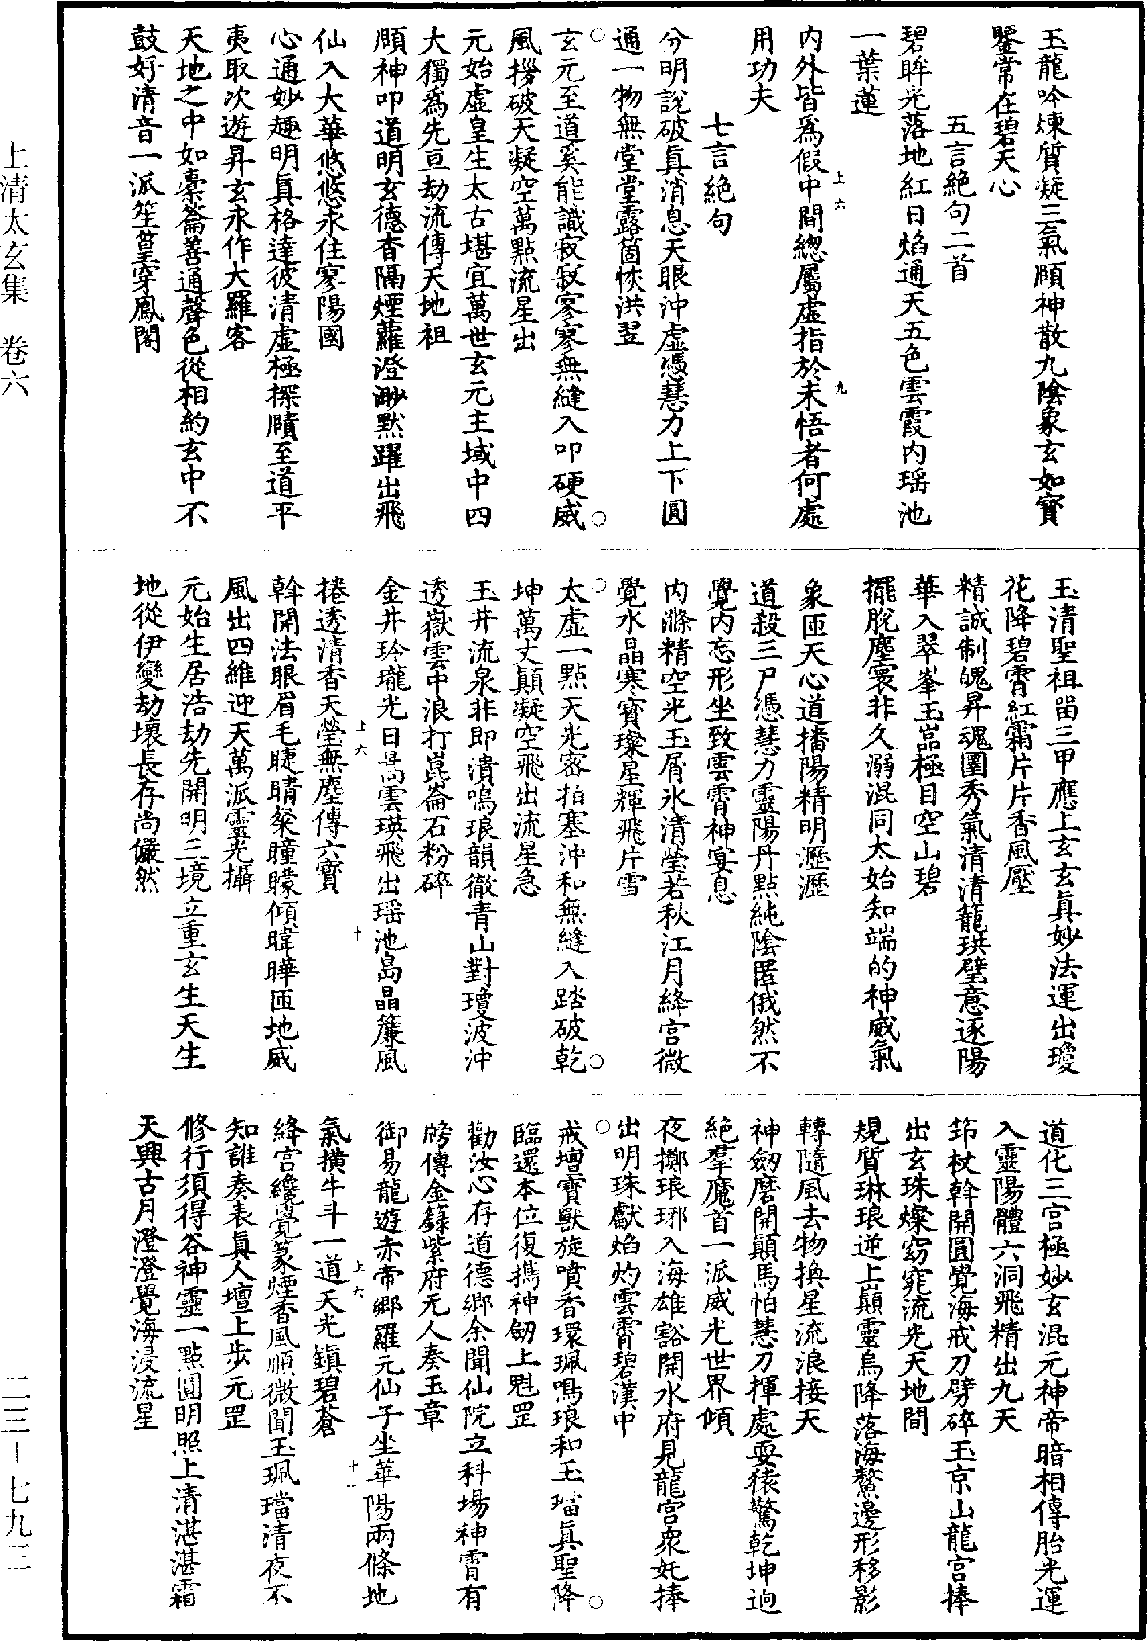 玉龍吟煉質凝三氣頤神散九陰象玄如寶
鑒常在碧天心
五言絕句二首
碧眸光落地紅日焰通天五色雲霞內瑶池
一葉蓮
內外皆爲假中間緫屬虛指於未悟者何處
用功夫
七言絕句
分明說破真消息天眼沖虛憑慧力上下圓
通一物無堂堂露箇恢洪翌
玄元至道奚能識寂寂寥寥無縫入叩硬威
風拶破天凝空萬點流星出
元始虛皇生太古堪宜萬世玄元主域中四
大獨爲先亘劫流傳天地祖
頤神叩道明玄德杳隔煙蘿澄渺默躍出飛
仙入大華悠悠永住寥陽國
心通妙趣明真格達彼清虛極探賾至道平
夷取次遊昇玄永作大羅客
天地之中如橐籥善通聲色從相約玄中不
鼓好清音一派笙篁穿鳳閣
玉清聖祖留三甲應上玄玄真妙法運出瓊
花降碧霄紅霜片片香風壓
精誠制魄昇魂圍秀氣清清龍珙璧意逐陽
華入翠峯玉嵓極目空山碧
擺脫塵寰非久溺混同太始知端的神威氣
象匝天心道播陽精明瀝瀝
道殺三尸憑慧力靈陽丹點純陰匿俄然不
覺內忘形坐致雲霄神宴息
內滌精空光玉屑氷清瑩若秋江月絳宮微
覺水晶寒寶璨星輝飛片雪
太虛一點天光密拍塞沖和無縫入踏破乾
坤萬丈顛凝空飛出流星急
玉井流泉非即潰鳴琅韻徹青山對瓊波沖
透嶽雲中浪打崑崙石粉碎
金井玲瓏光日暠雲瑛飛出瑶池島晶簾風
捲透清香天瑩無塵傳六寳
幹開法眼眉毛睫睛粲瞳矇傾暐曄匝地威
風出四維迎天萬派靈光攝
元始生居浩劫先開明三境立重玄生天生
地從伊變劫壞長存尚儼然
道化三宮極妙玄混元神帝暗相傳胎光運
入靈陽體六洞飛精出九天
筇杖幹開圓覺海戒刀劈碎玉京山龍宮捧
出玄珠燦窈窕流光天地間
規質琳琅逆上巔靈烏降落海鰲邊形移影
轉隨風去物換星流浪接天
神劒磨開顛馬怕慧刀揮處耍猿驚乾坤逈
絕羣魔首一派威光世界傾
夜擲琅琊入海雄豁開水府見龍宮衆妊捧
出明珠獻焰灼雲霄碧漢中
戒壇寶獸旋噴香環珮鳴琅和玉璫真聖降
臨還本位復擕神劒上魁罡
勸汝心存道德鄉余聞仙院立科場神霄有
牓傳金籙紫府元人奏玉章
御易龍遊赤帝鄉羅元仙子坐華陽兩條地
氣橫牛斗一道天光鎮碧蒼
絳宮纔覺篆煙香風順微聞玉珮璫清夜不
知誰奏表真人壇上步元罡
修行須得谷神靈一點圓明照上清湛湛霜
天興古月澄澄覺海浸流星
上六
九
上六
十
上六
十一
上清太玄集　卷六
二三－七九三